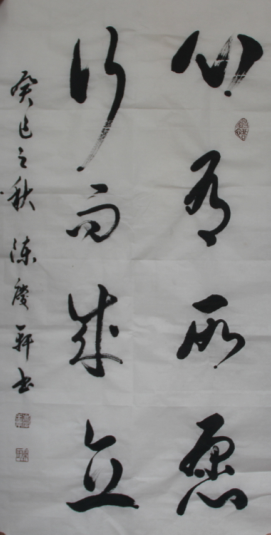 心有所愿
行而成立
癸巳之秋 陈庆轩书